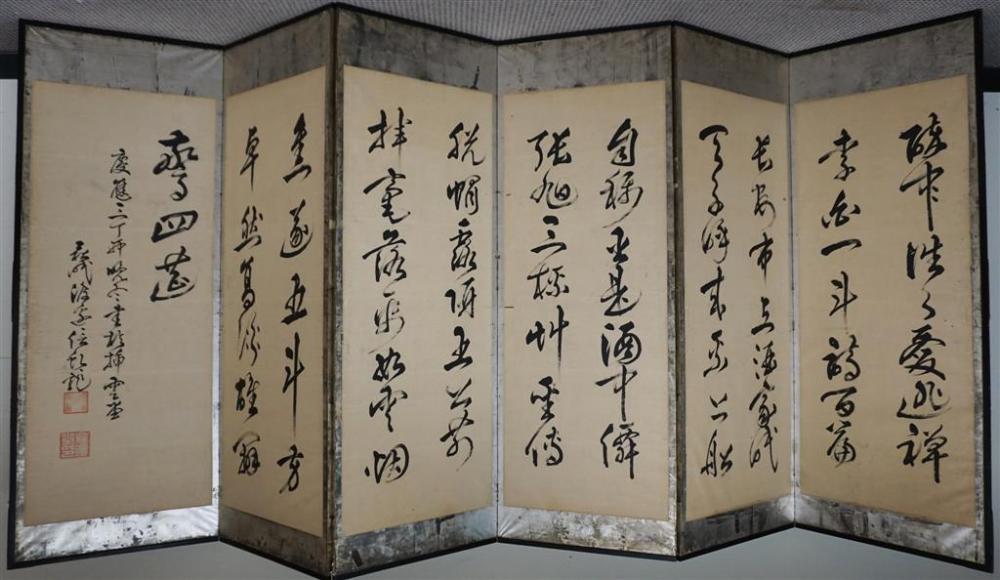 醉中往々愛逃禅
李白一斗詩百篇
長安市上酒家眠
天子呼来不上船
自稱臣是酒中僊
張旭三杯艸聖傳
脱帽露頂王公前
揮毫落紙如雲烟
焦遂五斗方
卓然高談雄辯
驚四莚
慶應三丁卯晩冬書於